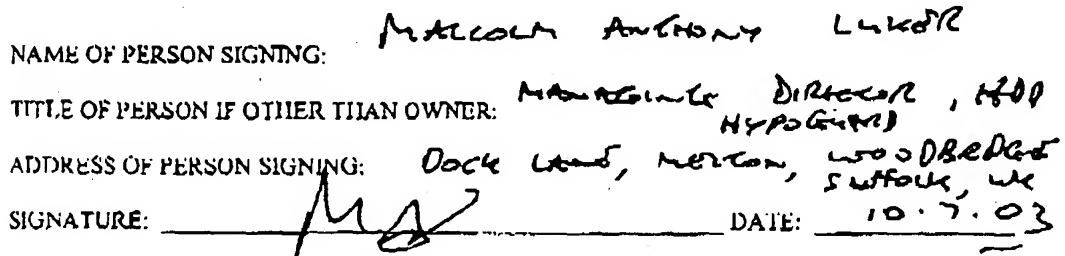 NAME OF PERSON SIGNING: MALCOLM ANTHONY LUKER
TITLE OF PERSON IF OTHER THAN OWNER: MANAGING DIRECTOR,
HYPOGUARD
ADDRESS OF PERSON SIGNING: DOCK LANE, MELTON, WOODBRIDGE
SUFFOLK, UK
SIGNATURE: DATE: 10.7.03